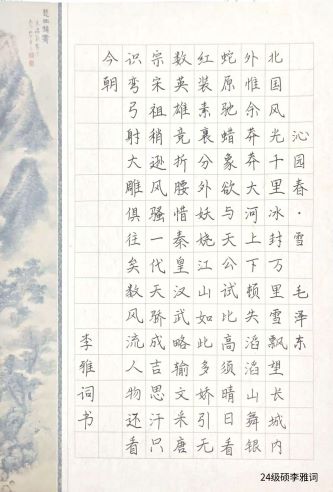 沁园春·雪 毛泽东
北国风光千里冰封万里雪飘望长城内
外惟余莽莽大河上下顿失滔滔山舞银
蛇原驰蜡象欲与天公试比高须晴日看
红装素裹分外妖娆江山如此多娇引无
数英雄竞折腰惜秦皇汉武略输文采唐
宗宋祖稍逊风骚一代天骄成吉思汗只
识弯弓射大雕俱往矣数风流人物还看
今朝
李雅词书
24级硕李雅词